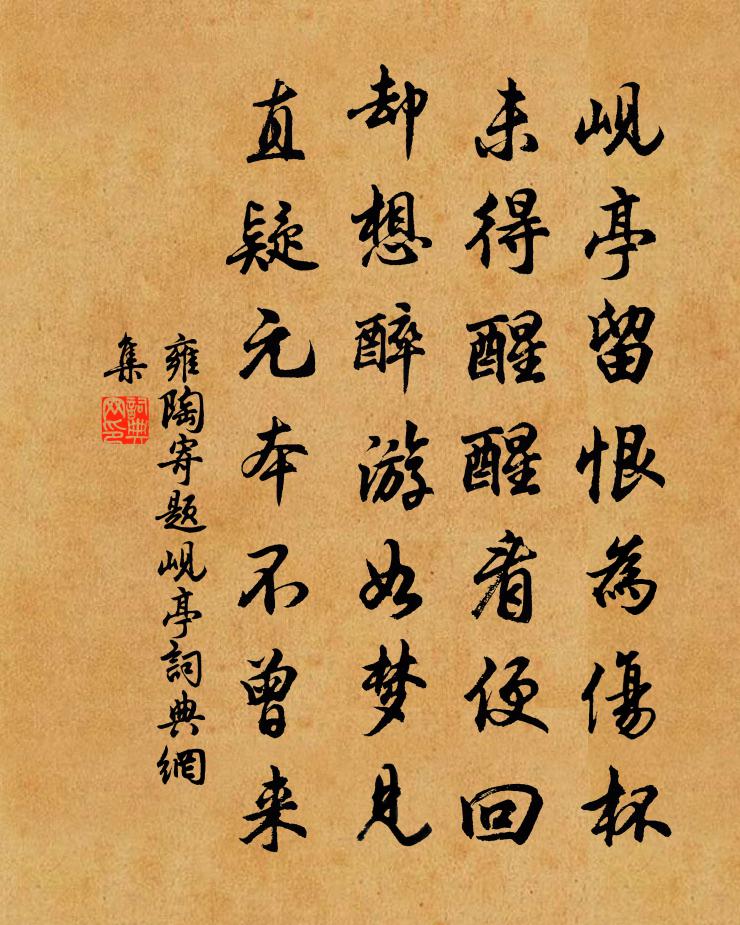 岘亭留恨為傷杯
未得醒醒看便回
却想醉游如梦見
直疑元本不曾来
雍陶寄题岘亭詞典網
集
詞典
网印